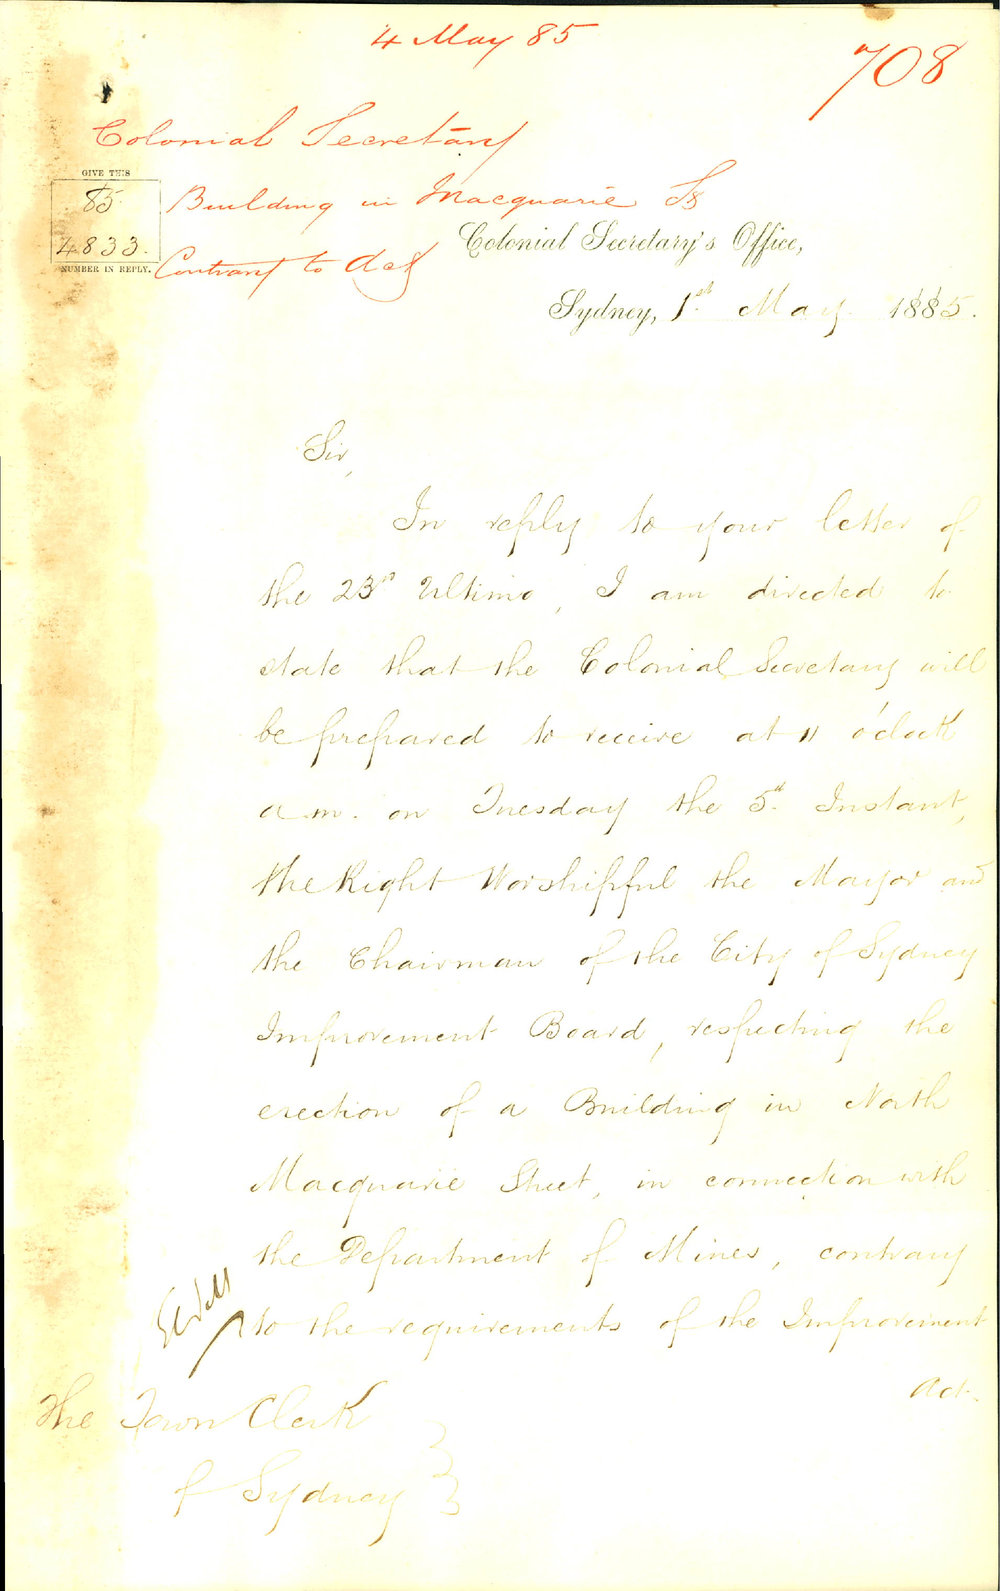 4 May 85
708
Colonial Secretary
GIVE THIS
85
4833.
NUMBER IN REPLY.
Building in Macquarie St
Contrary to Act
Colonial Secretary's Office,
Sydney, 1st May 1885.
Sir,
In reply to your letter of
the 23rd Ultimo, I am directed to
state that the Colonial Secretary will
be prepared to receive at 11 o'clock
a.m. on Tuesday the 5th Instant,
the Right Worshipful the Mayor and
the Chairman of the City of Sydney
Improvement Board, respecting the
erection of a Building in North
Macquarie Street, in connection with
the Department of Mines, contrary
to the requirements of the Improvement
Act.
The Town Clerk
of Sydney